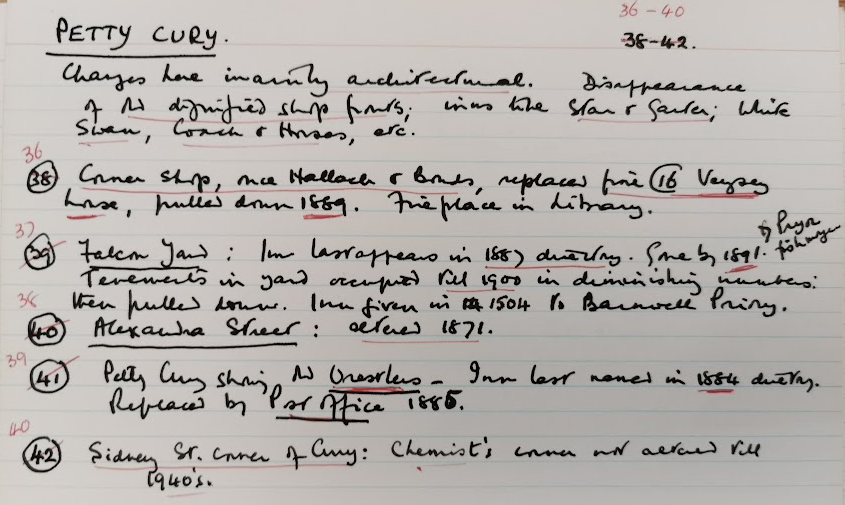 36-40
PETTY CURY.
38-42.
Changes here mainly architectural. Disappearance
of the dignified shop fronts; inns like Star & Garter; White
Swan, Coach & Horses, etc.
36
38 Corner shop, once Hallack & Bonds, replaced fine 16 Veysey
house, pulled down 1889. Fireplace in Library.
37
39 Falcon Yard: Inn last appears in 1887 directory. Gone by 1891.
Pryor
fishmonger
Tenements in yard occupied till 1900 in diminishing numbers:
38
then pulled down. Inn given in 1504 to Barnwell Priory.
40 Alexandra Street: altered 1871.
39
41 Petty Cury showing the Wrestlers - Inn last named in 1884 directry.
Replaced by Post Office 1885.
40
42 Sidney St. corner of Cury: Chemist's corner not altered till
1940's.